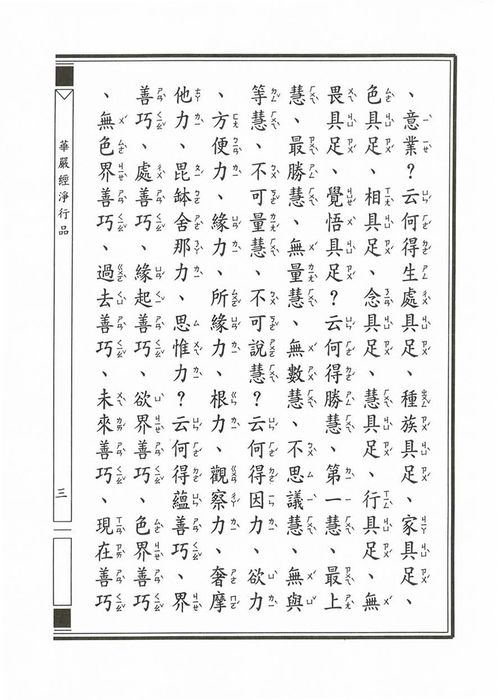 、意業?云何得生處具足、種族具足、家具足、
色具足、相具足、念具足、慧具足、行具足、無
畏具足、覺悟具足?云何得勝慧、第一慧、最上
慧、最勝慧、無量慧、無數慧、不思議慧、無與
等慧、不可量慧、不可說慧?云何得因力、欲力
、方便力、緣力、所緣力、根力、觀察力、奢摩
他力、毘鉢舍那力、思惟力?云何得蘊善巧、界
善巧、處善巧、緣起善巧、欲界善巧、色界善巧
、無色界善巧、過去善巧、未來善巧、現在善巧
華嚴經淨行品
三